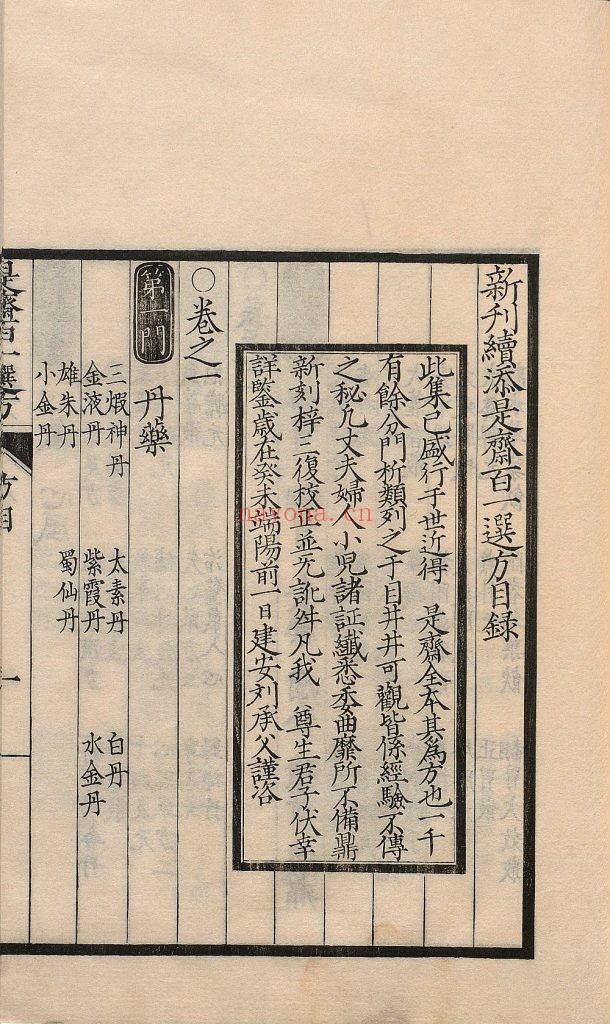 新刊續添是齋百一選方目錄
此集已盛行于世近得　是齋全本其為方也一千
有餘分門析類列之于目井井可觀皆係經驗不傳
之秘凡丈夫婦人小兒諸証纖悉委曲靡所不備鼎
新刻梓三復校正並无訛舛凡我　尊生君子伏幸
詳鑒歲在癸未端陽前一日建安刘承父謹咨
〇卷之一
第一門　丹藥
三煆神丹　太素丹　白丹
金液丹　紫霞丹　水金丹
雄朱丹　蜀仙丹
小金丹
是齋百一選方　方目　一
nayona.cn